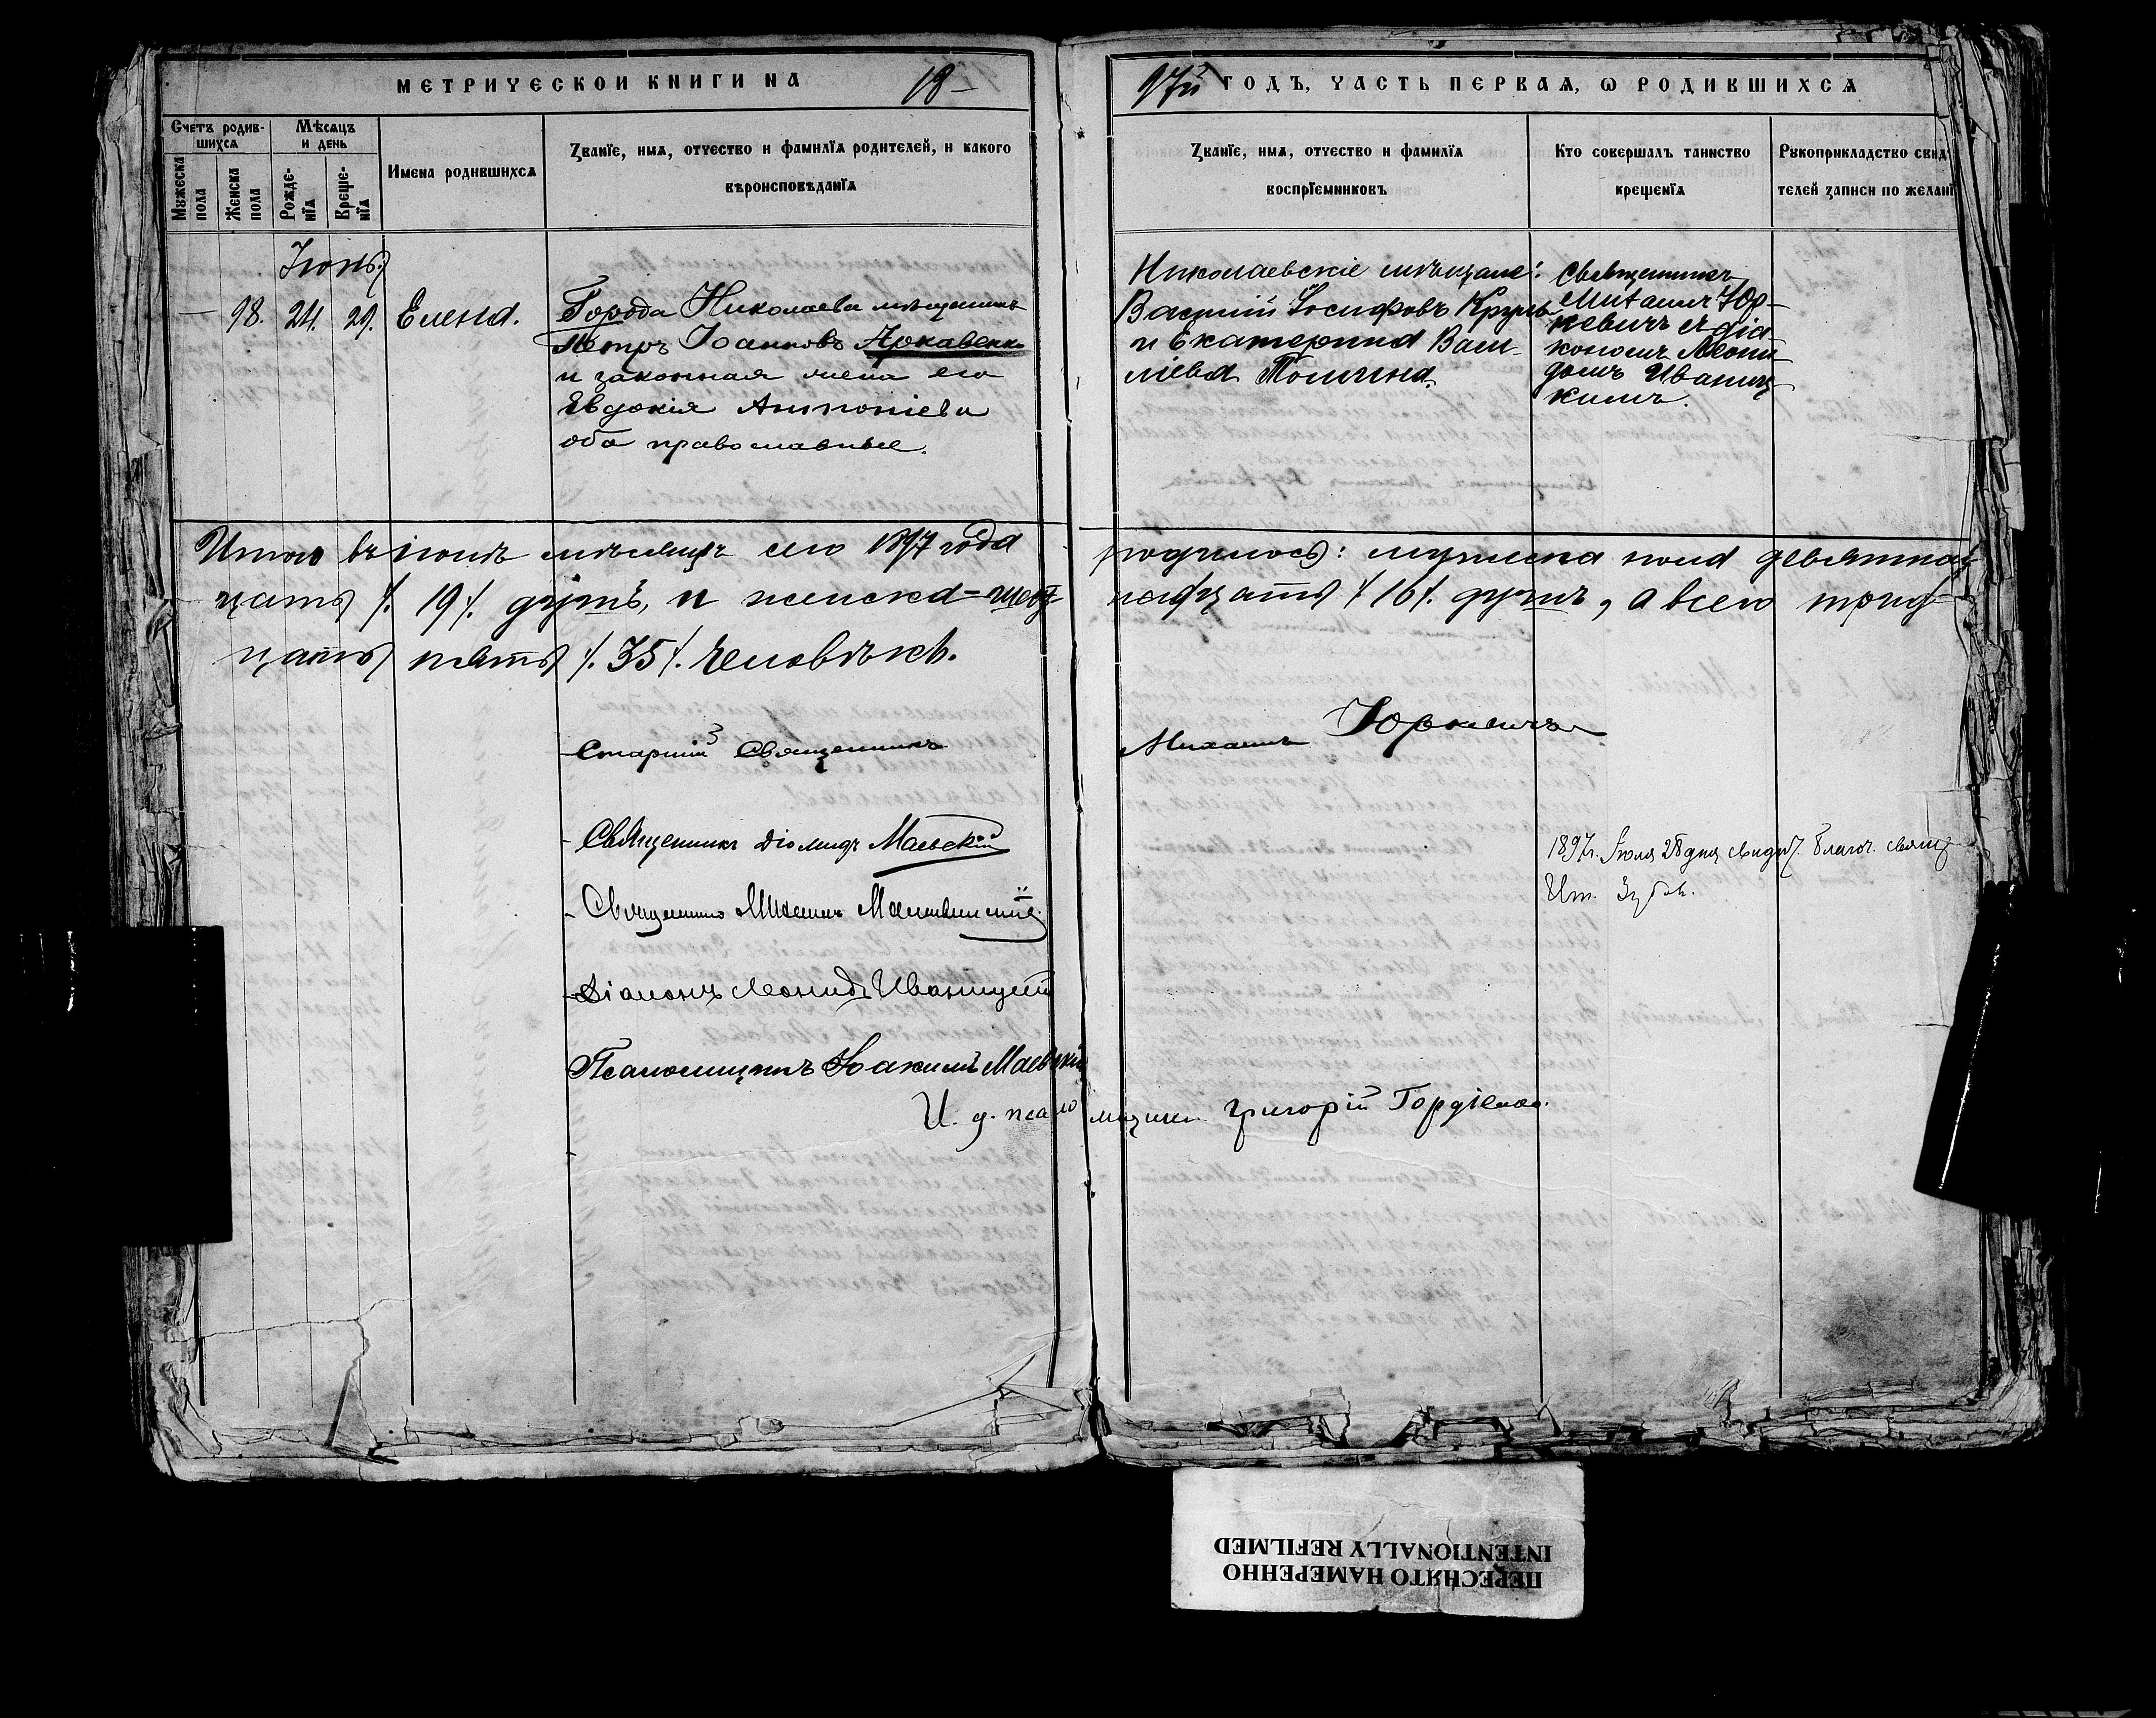 МЕТРИЧЕСКОЙ КНИГИ НА 18–97й ГОДЪ, ЧАСТЬ ПЕРВАЯ, Ѡ РОДИВШИХСЯ
Счетъ родив-
шихся
Мѣсяцъ
и день
Мужеска
пола
Женска
пола
Рожде-
нїя
Креще-
нїя
Имена родившихся
Званїе, имя, отчество и фамилїя родителей, и какого
вѣроисповѣданїя
Званїе, имя, отчество и фамилїя
воспрїемниковъ
Кто совершалъ таинство
крещенїя
Рукоприкладство свид
телей записи по желанї
Іюнь
— 98. 24. 29. Елена.
Города Николаева мѣщанинъ
Петръ Іоанновъ Аркавенко
и законная жена его
Евдокія Антоніева
оба православные.
Николаевскіе мѣщане:
Василій Іосифовъ
и Екатерина Васи-
ліева
Священникъ
Михаилъ Юр-
кевичъ съ діа-
кономъ Леони-
домъ Иваниц-
кимъ.
Итого въ іюнѣ мѣсяцѣ сего 1897 года родилось: мужеска пола девятнад-
цать /. 19 /. душъ, и женска – шест-надцать /. 16 /. душъ, а всего трид-
цать пять /. 35 /. человѣкъ.
Старшій Священникъ Михаилъ Юркевичъ
Священникъ Діомидъ Маевскій
1897г. Іюля 28 дня Благоч. свящ.
Священникъ Михаилъ
Діаконъ Леонидъ Иваницкій
Псаломщикъ Іоакимъ Маевскій
И. д. псаломщика Григорій Гордіенко.
ПЕРЕСНЯТО НАМЕРЕННО
INTENTIONALLY REFILMED